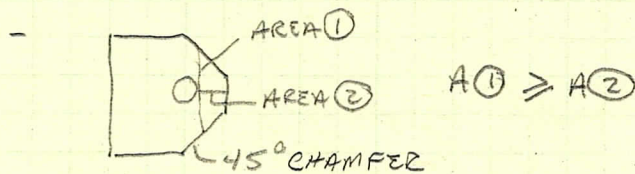 -
AREA ①
AREA ②
A① ⩾ A②
45° CHAMFER